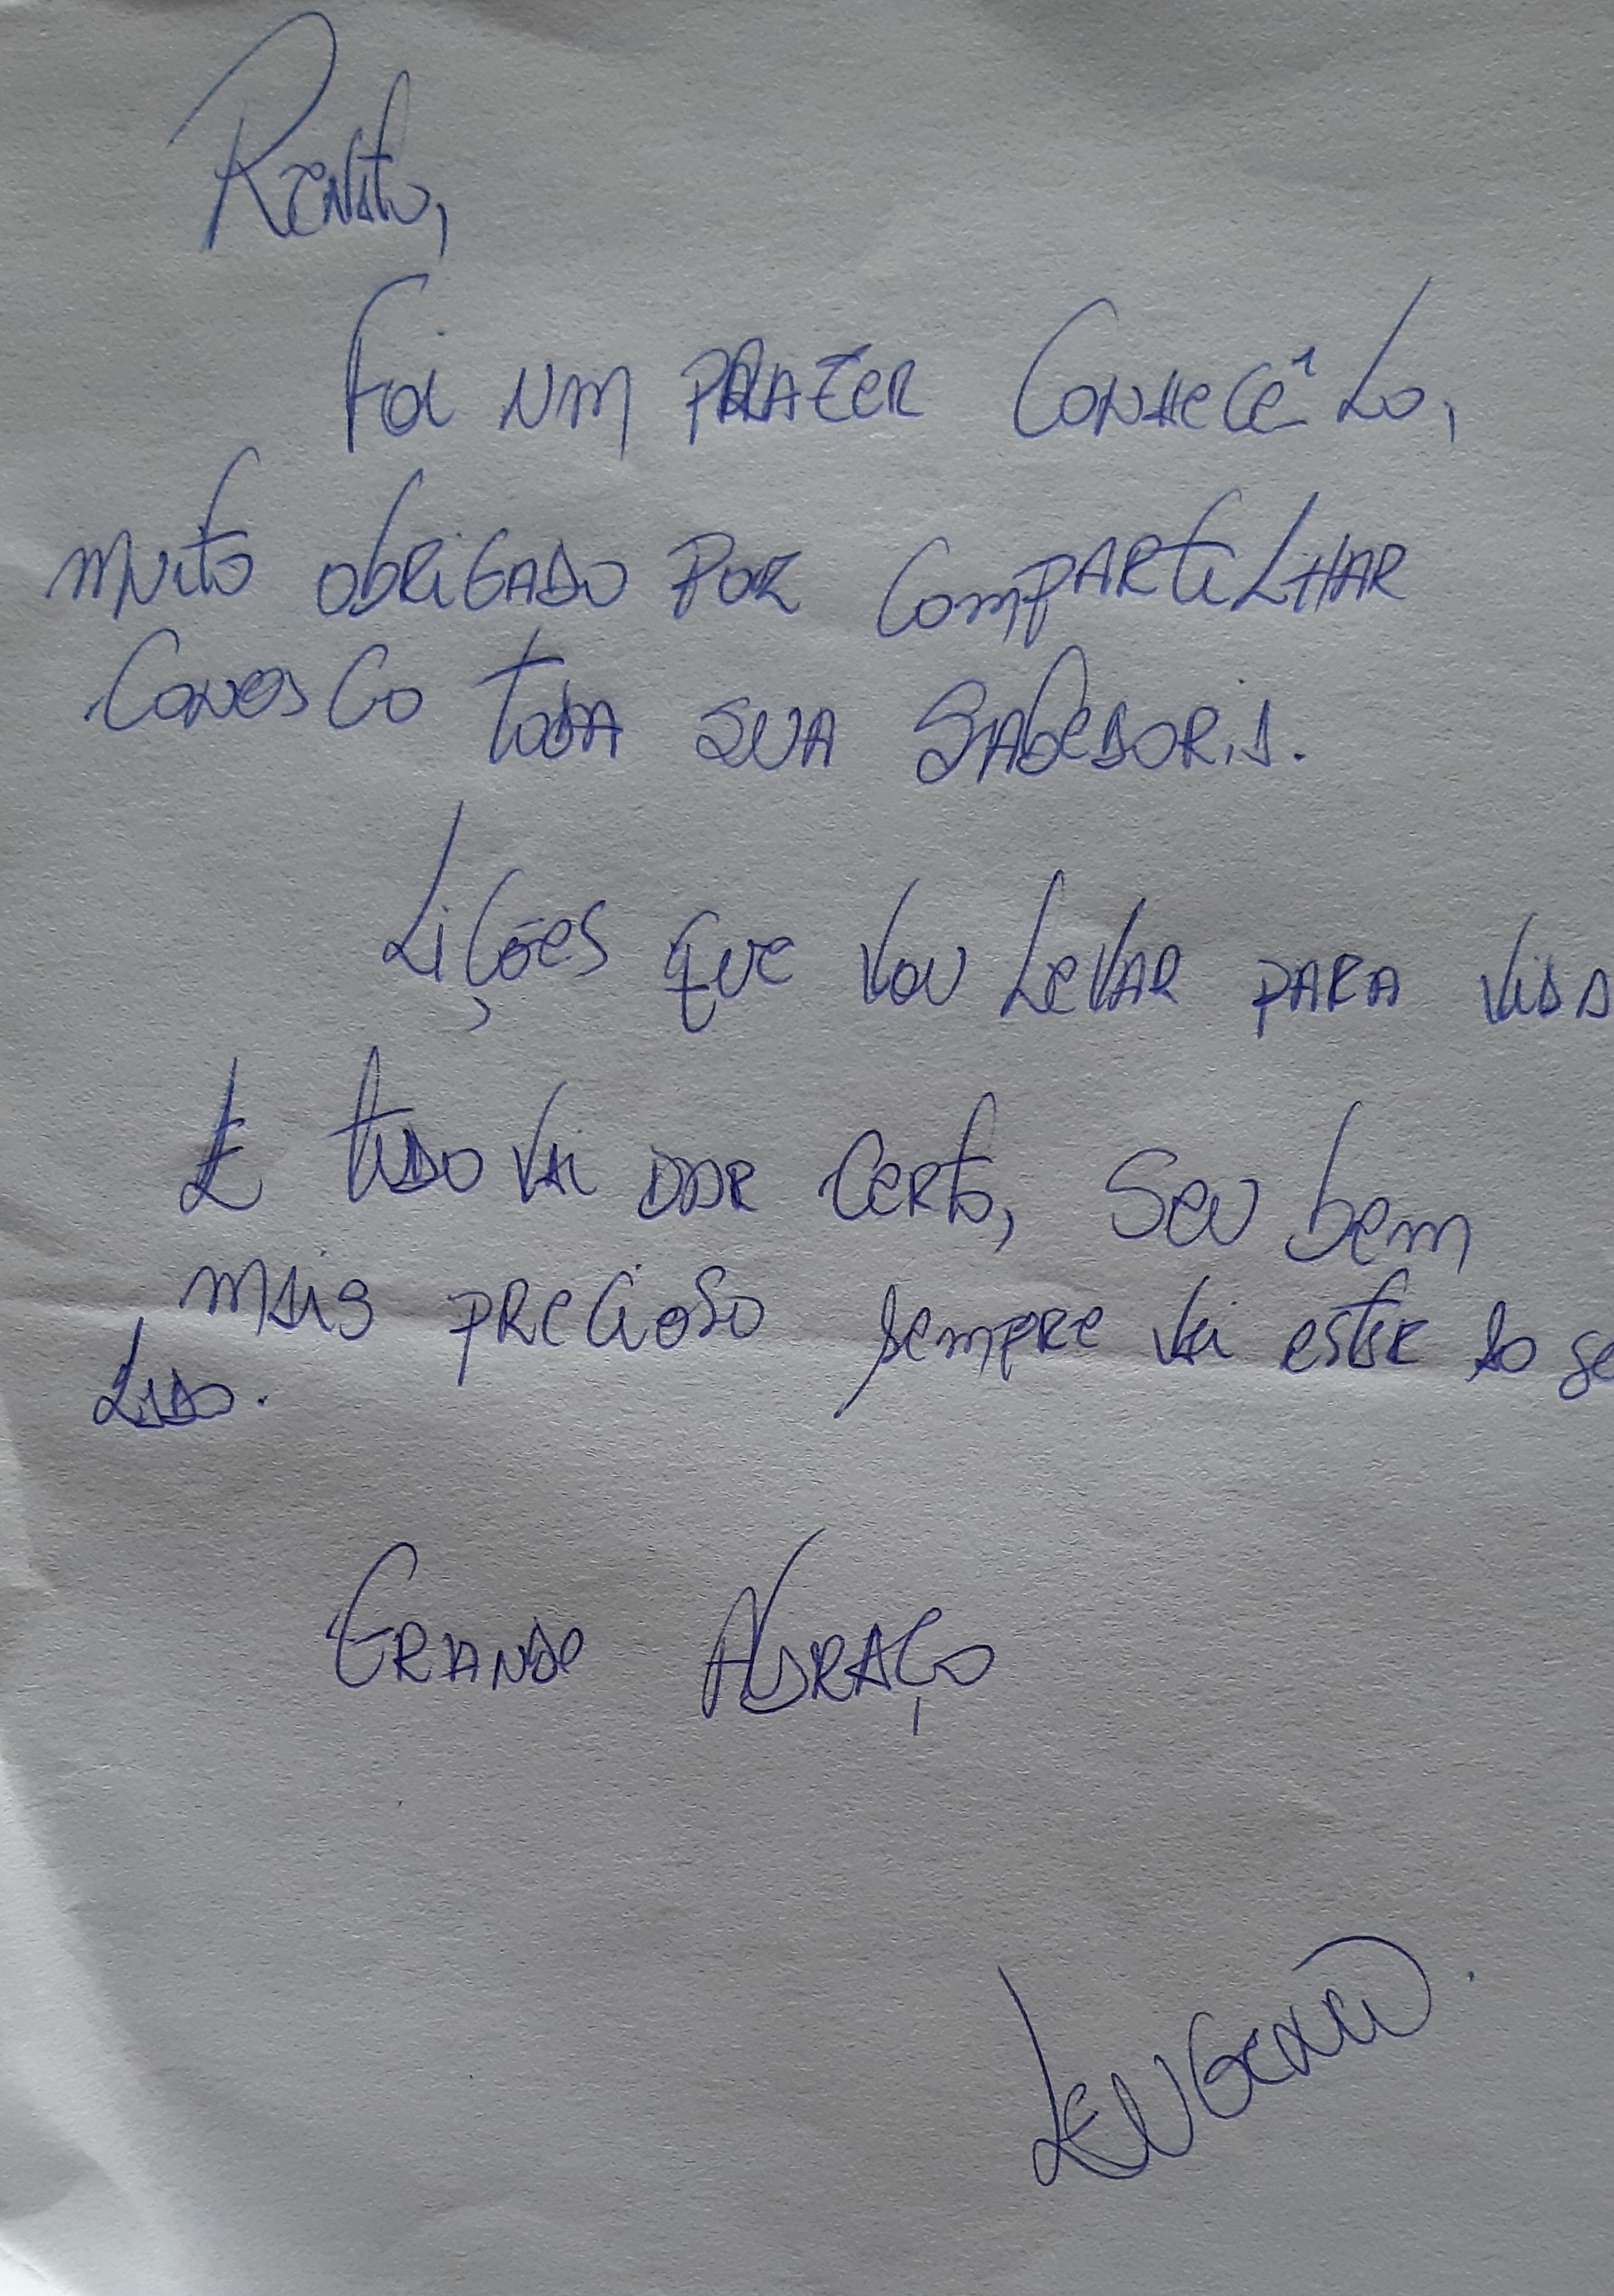 Renato,
Foi um prazer conhecê-lo,
muito obrigado por compartilhar
conosco toda sua sabedoria.
Lições que vou levar para vida
E tudo vai dar certo, seu bem
mais precioso sempre vai estar ao se
lado.
Grande Abraço